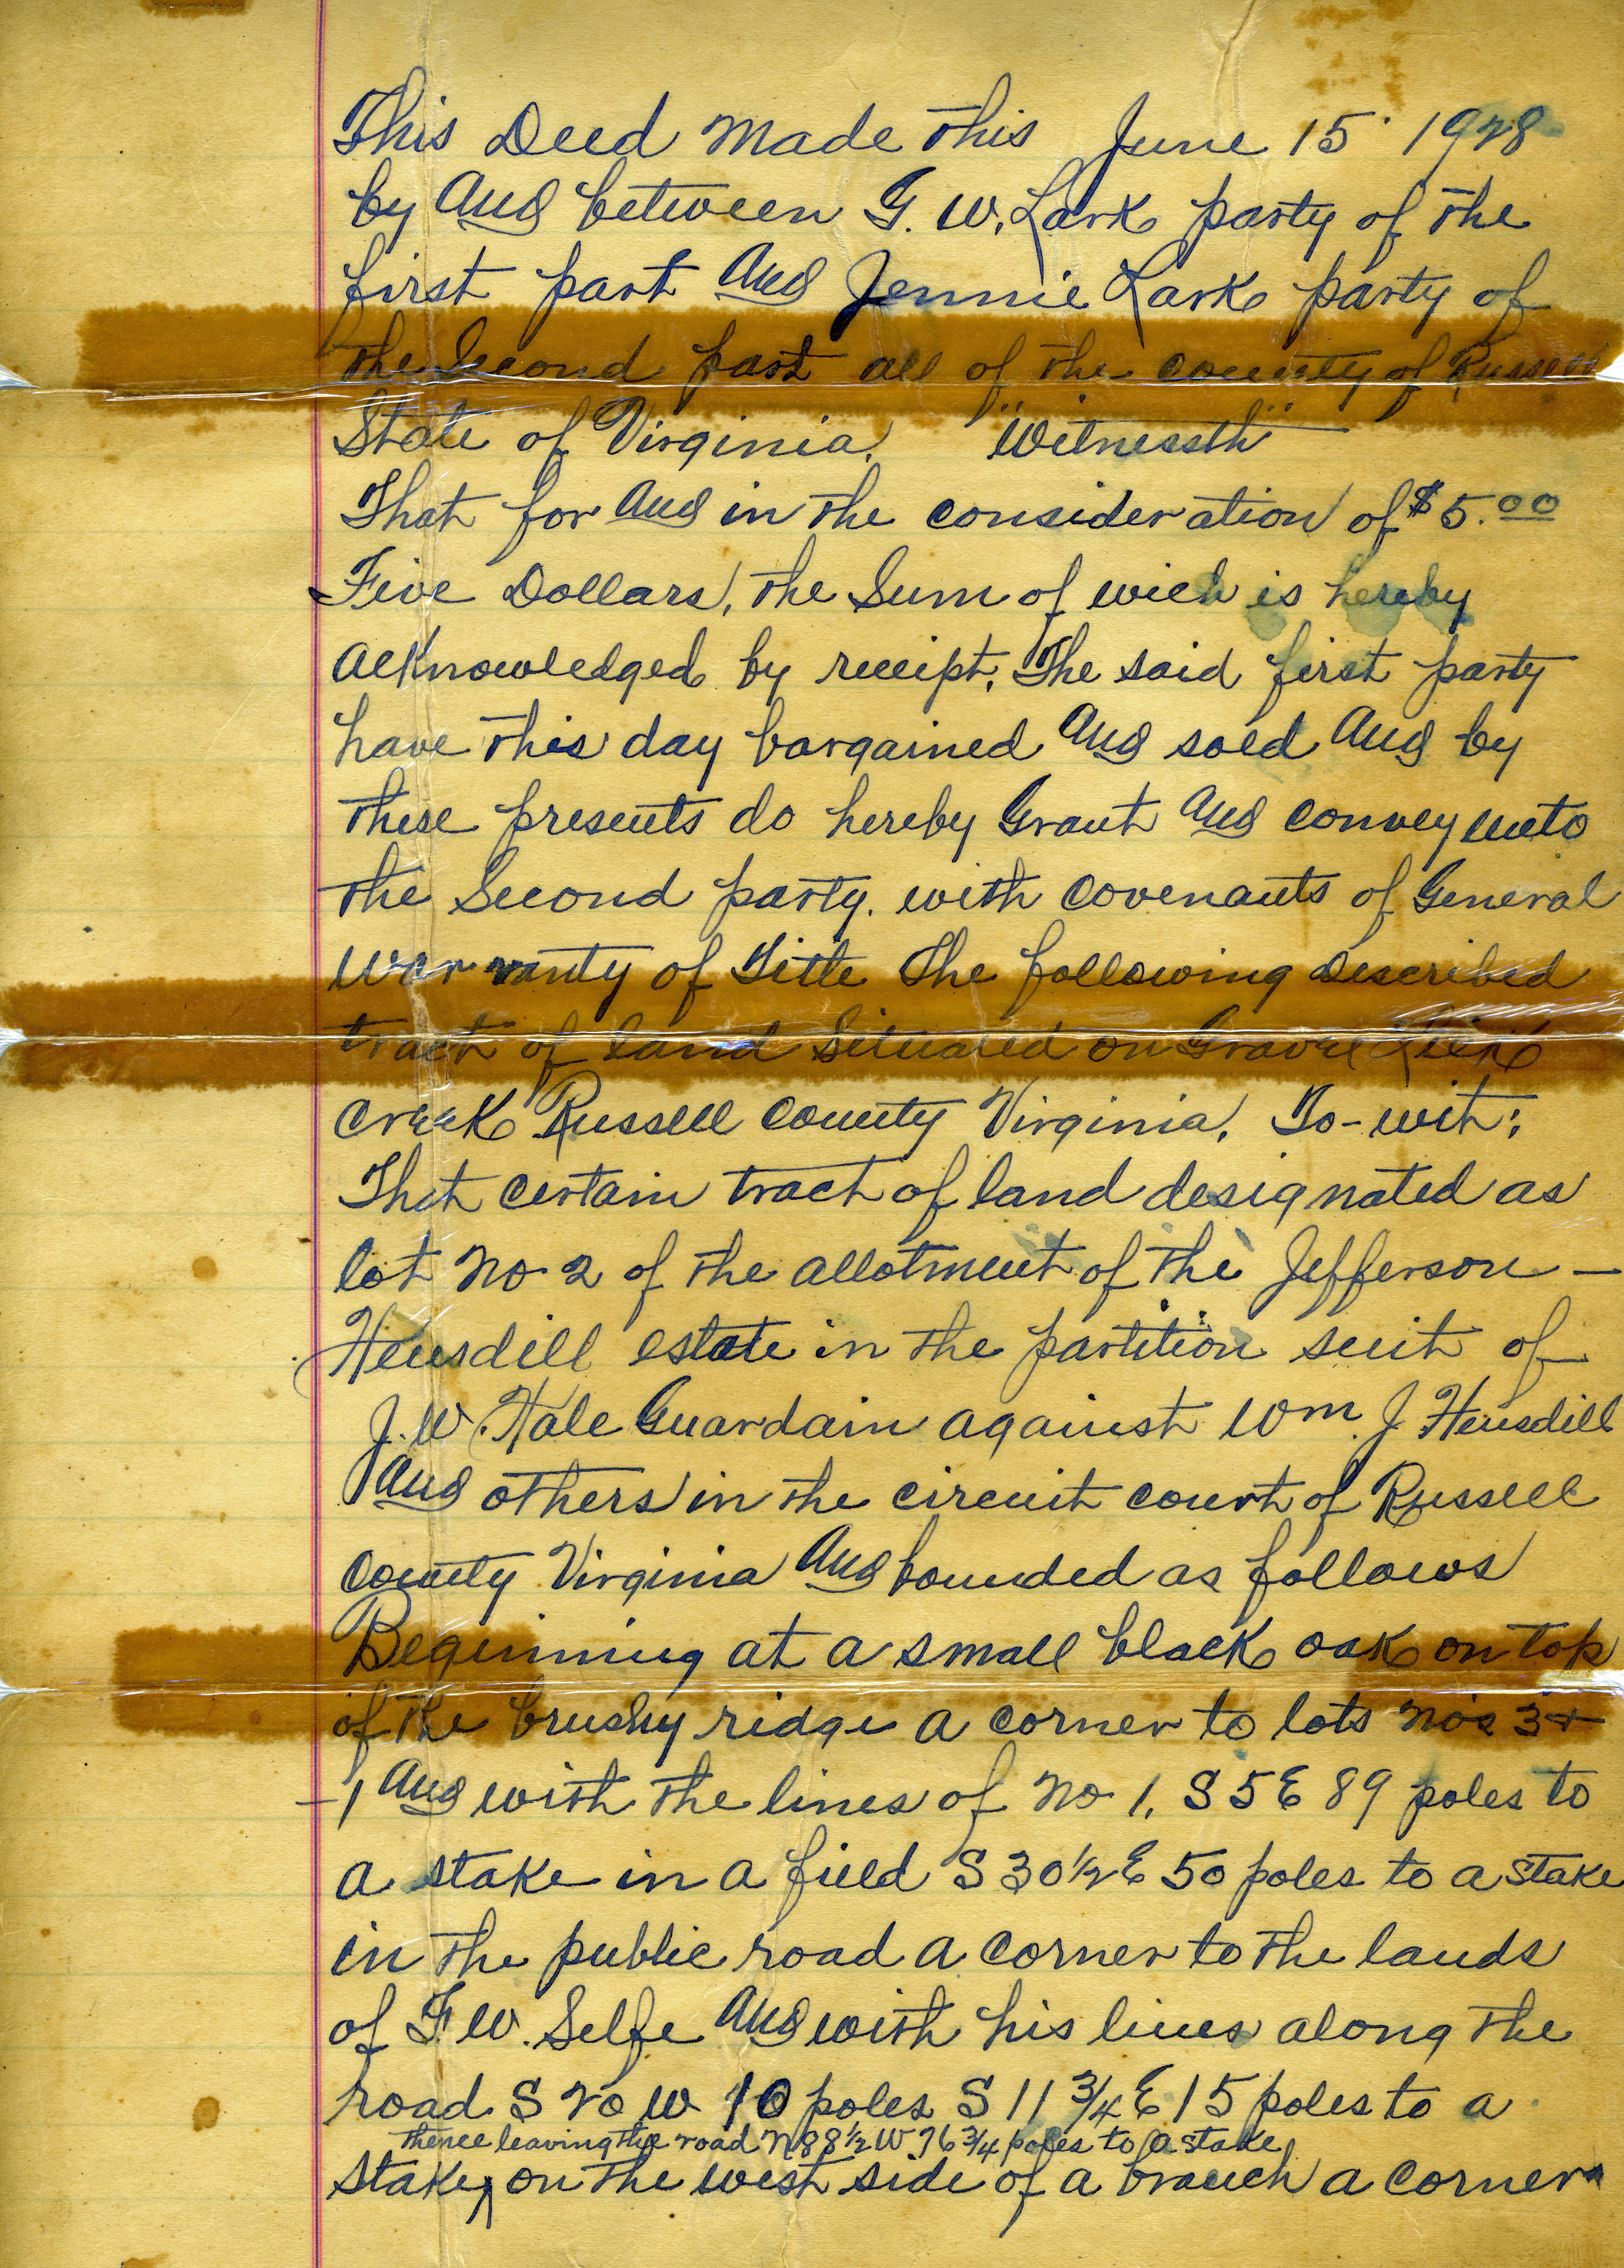 This Deed Made this June 15 1928
by And between G. W. Lark party of the
first part And Jennie Lark party of
the Second part all of the county of Russell
State of Virginia. "Witnesseth"
That for And in the consideration of $5.00
Five Dollars, the Sum of wich is hereby
acknowledged by receipt, The said first party
have this day bargained And sold And by
these presents do hereby Grant And convey unto
the Second party. with covenants of General
warranty of Title The following Described
tract of land Situated on Gravel Lick
creek Russell County Virginia, To-wit;
That certain tract of land designated as
lot No 2 of the allotment of the Jefferson -
Hensdill estate in the partition suit of
J. W. Hale Guardain against Wm. J Hensdill
And others in the circuit court of Russell
County Virginia And bounded as follows
Beginning at a small black oak on top
of the brushy ridge a corner to lots No's 3 &
-1 And with the lines of No 1, S 5 E 89 poles to
a stake in a field S 30 1/2 E 50 poles to a stake
in the public road a corner to the lands
of F. W. Selfe And with his lines along the
road S 20 W 10 poles S 11 3/4 E 15 poles to a
thence leaving the road N 88 1/2 W 76 3/4 poles to a stake
stake, on the west side of a branch a corner